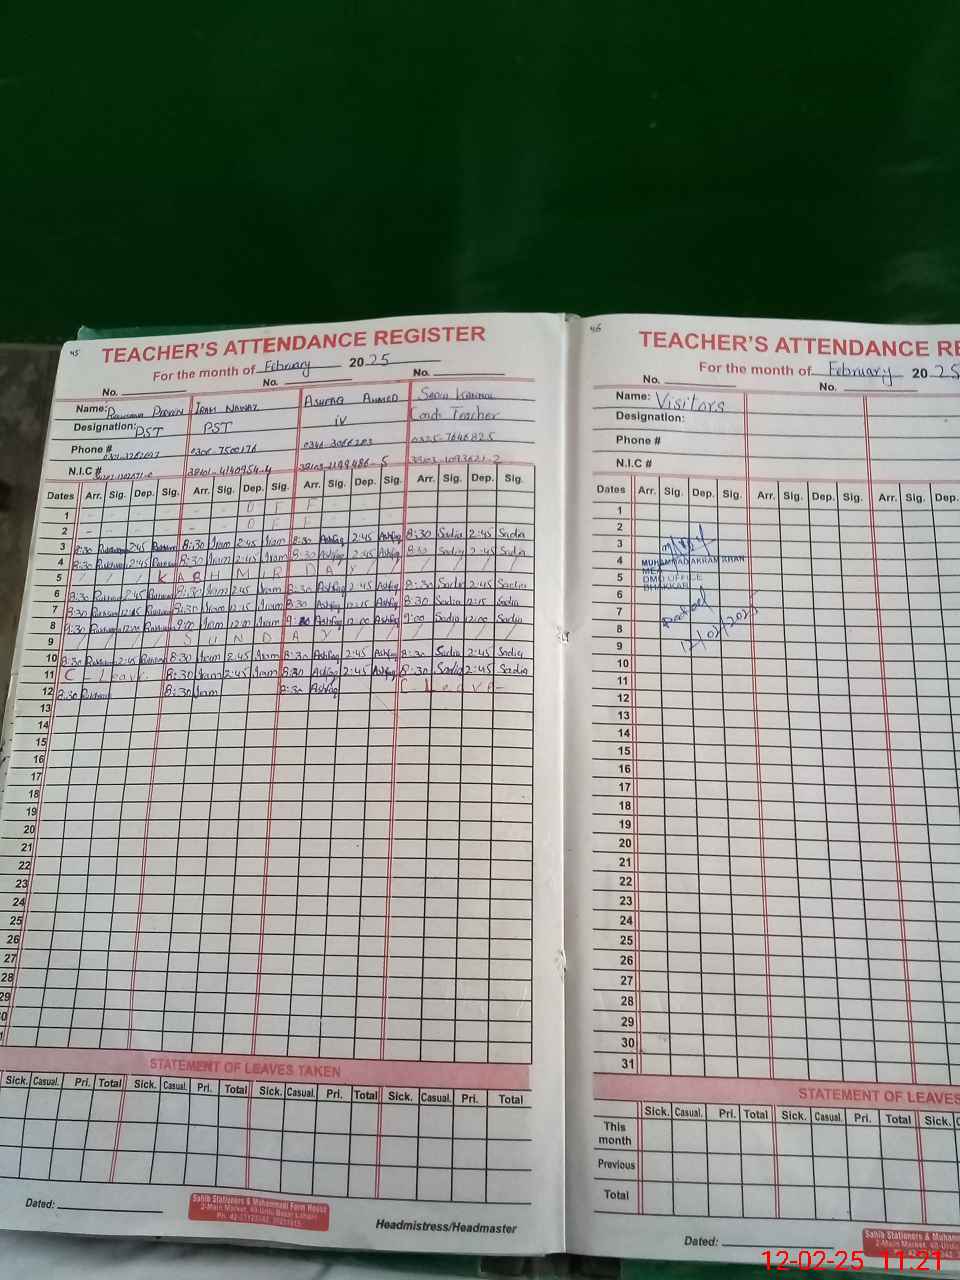 45
TEACHER'S ATTENDANCE REGISTER
For the month of February 2025
No. No. No.
Name: Parvin Iram Nawaz Ashfaq Ahmed Sadia
Designation: PST PST IV Coach Teacher
Phone #
N.I.C #
Dates Arr. Sig. Dep. Sig. Arr. Sig. Dep. Sig. Arr. Sig. Dep. Sig. Arr. Sig. Dep. Sig.
1 - - - - - - O F F - -
2 - - - - - - O F F - -
3 8:30 Rukhsana 2:45 Rukhsana 8:30 Iram 2:45 Iram 8:30 Ashfaq 2:45 Ashfaq 8:30 Sadia 2:45 Sadia
4 8:30 Rukhsana 2:45 Rukhsana 8:30 Iram 2:45 Iram 8:30 Ashfaq 2:45 Ashfaq 8:30 Sadia 2:45 Sadia
5 / / / K A S H M I R D A Y / / / / /
6 8:30 Rukhsana 2:45 Rukhsana 8:30 Iram 2:45 Iram 8:30 Ashfaq 2:45 Ashfaq 8:30 Sadia 2:45 Sadia
7 8:30 Rukhsana 12:15 Rukhsana 8:30 Iram 12:15 Iram 8:30 Ashfaq 12:15 Ashfaq 8:30 Sadia 12:15 Sadia
8 9:30 Rukhsana 12:00 Rukhsana 9:00 Iram 12:00 Iram 9:00 Ashfaq 12:00 Ashfaq 9:00 Sadia 12:00 Sadia
9 / / / / S U N D A Y / / / / / /
10 8:30 Rukhsana 2:45 Rukhsana 8:30 Iram 2:45 Iram 8:30 Ashfaq 2:45 Ashfaq 8:30 Sadia 2:45 Sadia
11 C - Leave. 8:30 Iram 2:45 Iram 8:30 Ashfaq 2:45 Ashfaq 8:30 Sadia 2:45 Sadia
12 8:30 Rukhsana 8:30 Iram 8:30 Ashfaq C. Leave -
13
14
15
16
17
18
19
20
21
22
23
24
25
26
27
28
29
30
STATEMENT OF LEAVES TAKEN
Sick. Casual. Pri. Total Sick. Casual. Pri. Total Sick. Casual. Pri. Total Sick. Casual. Pri. Total
Dated:
Sahib Stationers & Muhammadi Form House
2-Main Market, 40-Urdu Bazar Lahore
Headmistress/Headmaster
46
TEACHER'S ATTENDANCE RE
For the month of February 2025
No. No.
Name: Visitors
Designation:
Phone #
N.I.C #
Dates Arr. Sig. Dep. Sig. Arr. Sig. Dep. Sig. Arr. Sig. Dep.
1
2
3
4
5
6
7
8
9
10
11
12
13
14
15
16
17
18
19
20
21
22
23
24
25
26
27
28
29
30
31
MUHAMMAD AKRAM KHAN
MEA
DMO OFFICE
BHAKKAR
12/02/2025
STATEMENT OF LEAVES
Sick. Casual. Pri. Total Sick. Casual. Pri. Total Sick.
This month
Previous
Total
Dated:
Sahib Stationers & Muhamm
2-Main Market, 40-Urdu
12-02-25 11:21